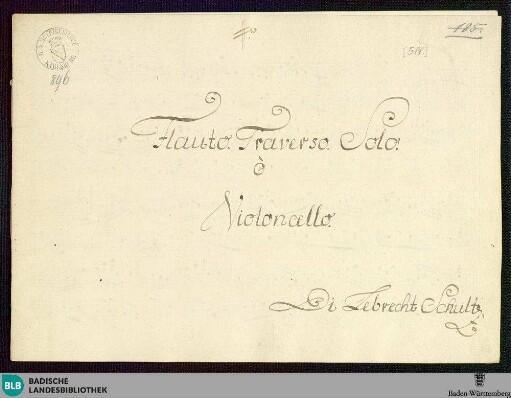 105.
[518.]
846
Flauto. Traverso. Solo.
è
Violoncello.
Di Lebrecht Schultz
BLB BADISCHE
LANDESBIBLIOTHEK
Baden-Württemberg